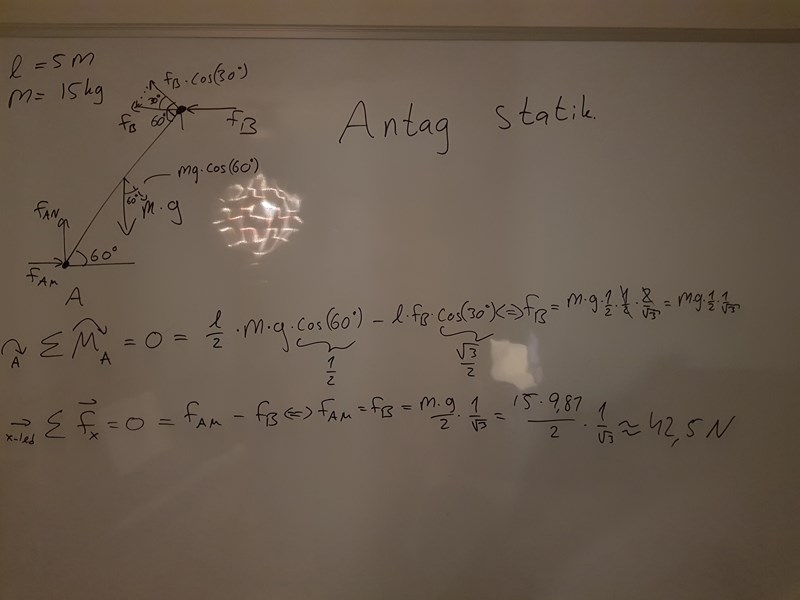 l = 5m
m = 15kg
f_B·cos(30°)
30°
f_B 60° f_B
Antag statik.
mg·cos(60°)
60° m·g
f_AN
60°
f_Aμ
A
↷A Σ M_A = 0 = l/2 · m·g·cos(60°) − l·f_B·cos(30°) <=> f_B = m·g·1/2·1/2·2/√3 = m·g·1/2·1/√3
1/2 √3/2
→ x-led Σ f_x = 0 = f_Aμ − f_B <=> f_Aμ = f_B = m·g/2 · 1/√3 = 15·9,81/2 · 1/√3 ≈ 42,5 N